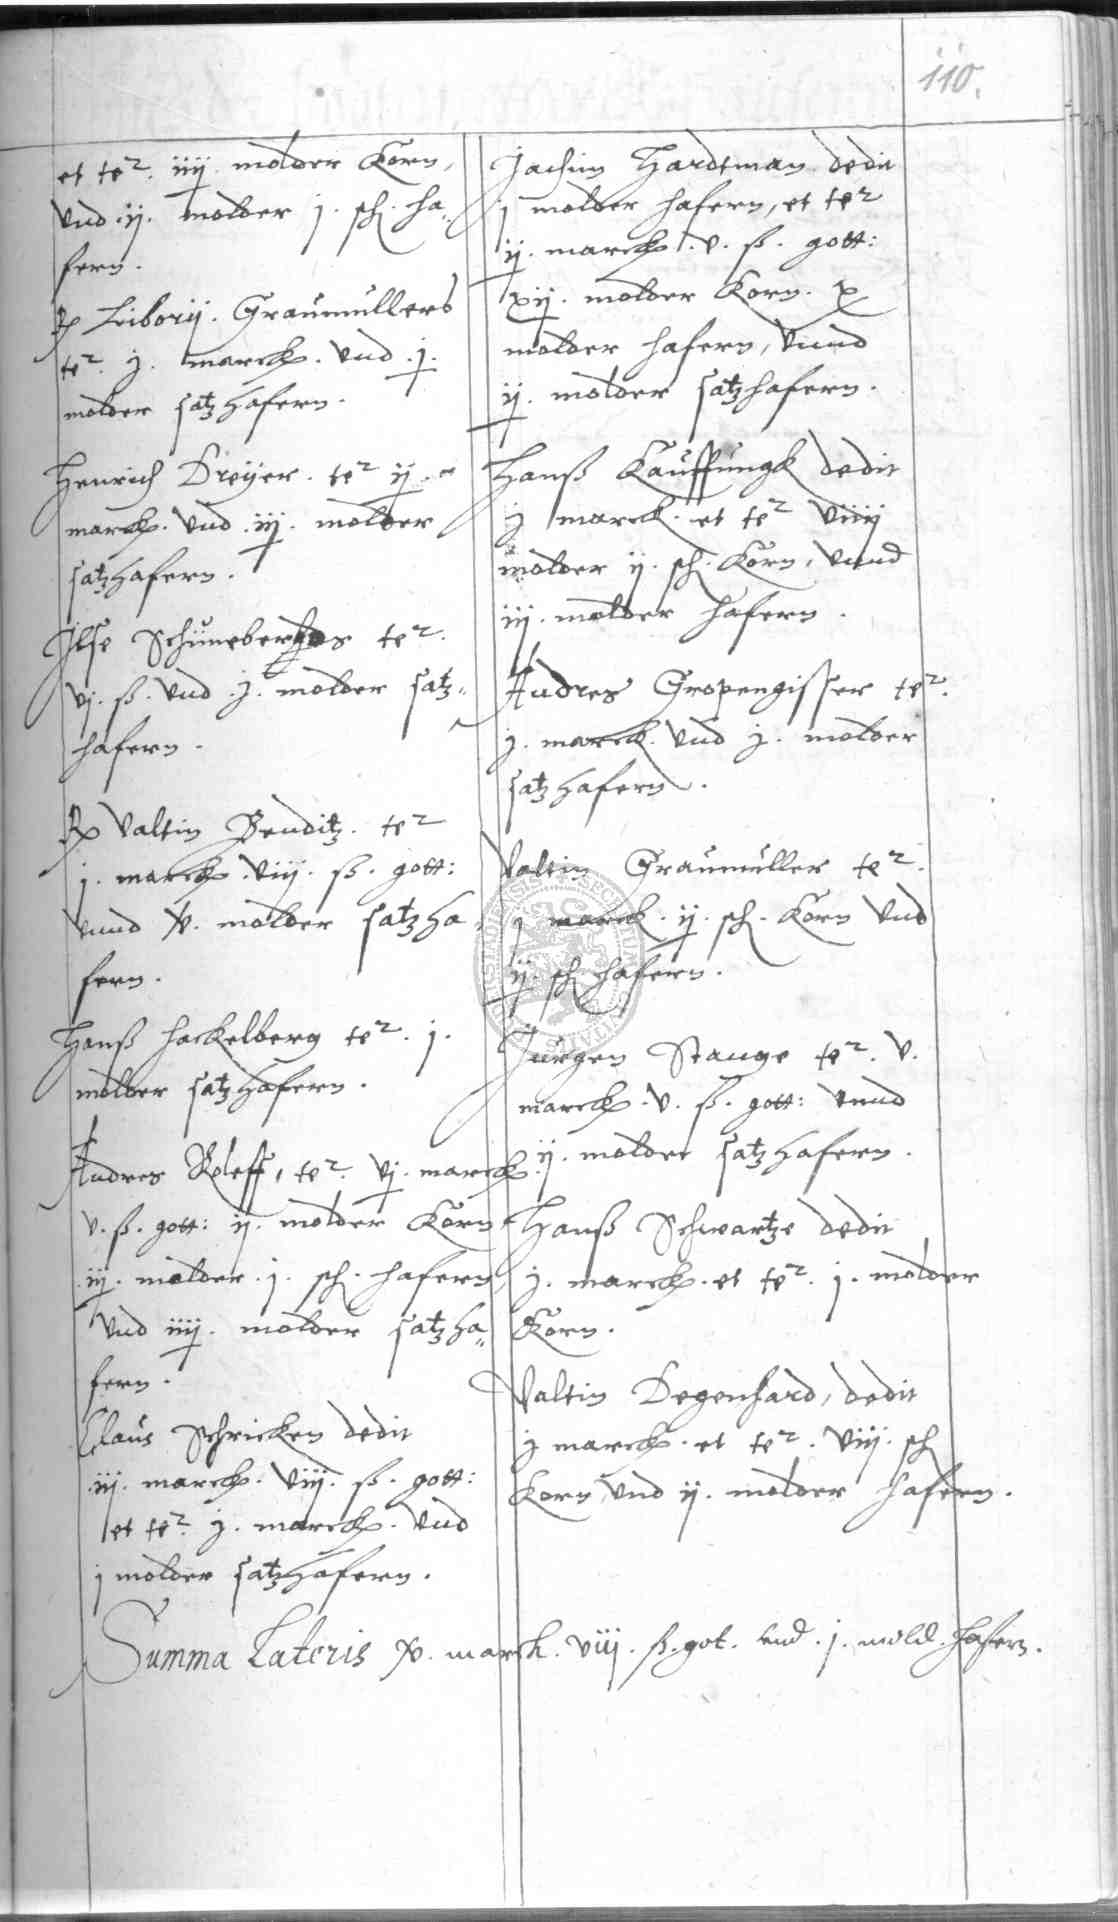 110.
et te2. iiij. molder Korn,
vnd ij. molder j. sch. ha„
fern.
Rx Liborij. Graumullers
te2. j. marck. vnd .j.
molder satzhafern.
Henrich Dreyer. te2 ij.
marck. vnd .iij. molder
satzhafern.
Ilse Schüneberges te2.
vj. ß. vnd .j. molder satz„
hafern.
Rx Valtin Benditz. te2
j. marck. viij. ß. gott:
vnnd x. molder satzha
fern.
Hanß Hackelberg te2. j.
molder satzhafern.
Andres Roleff, te2. vj. marck
v. ß. gott: ij. molder Korn
iij. molder .j. sch. hafern,
vnd iiij. molder satzha„
fern.
Claus Schricken dedit
iij. marck. viij. ß. gott:
et te2. j. marck. vnd
j molder satzhafern.
Jachim Hardtman dedit
j molder hafern, et te2
ij. marck. v. ß. gott:
xij. molder Korn. x
molder hafern, vnnd
ij. molder satzhafern.
Hanß Kauffungk dedit
j marck. et te2 viiij
molder ij. sch. Korn, vnnd
iij. molder hafern.
Andres Gropengisser te2.
j. marck. vnd j. molder
satzhafern.
Valtin Graumüller te2.
j marck. ij. sch. Korn vnd
ij. sch hafern.
Jurgen Stange te2. v.
marck. v. ß. gott: vnnd
ij. molder satzhafern.
Hanß Schwartze dedit
j. marck. et te2. j. molder
Korn.
Valtin Degenhard, dedit
j marck. et te2. viij. sch
Korn vnd ij. molder hafern.
Summa Lateris x. marck. viij. ß. got. vnd .j. mold. hafern.